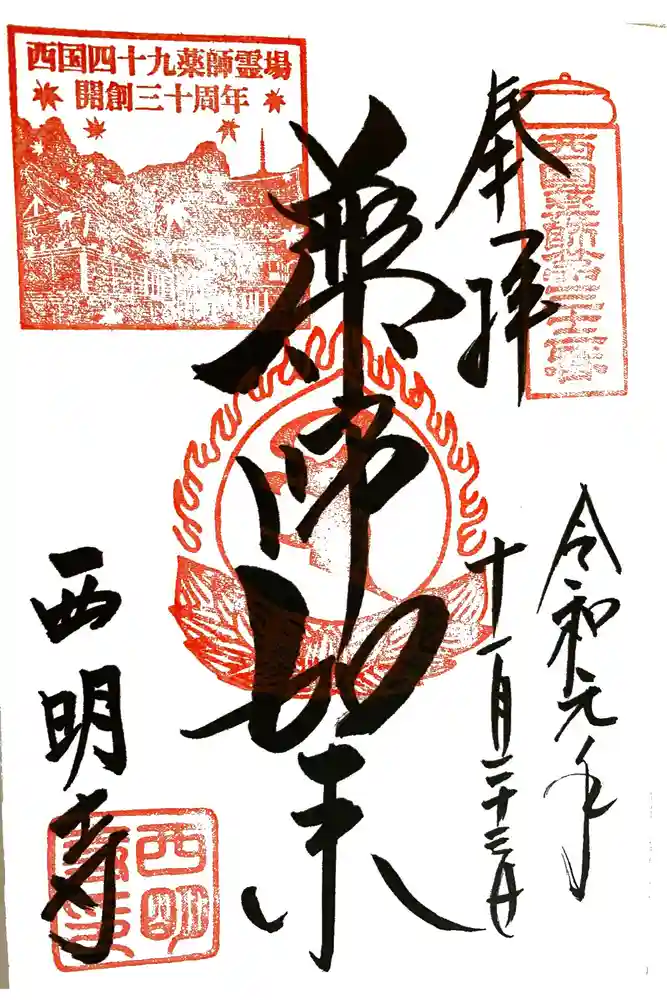 西国四十九薬師霊場
開創三十周年
西国薬師第三十二番
奉拝
令和元年
十一月二十三日
薬師如来
西明寺
西明